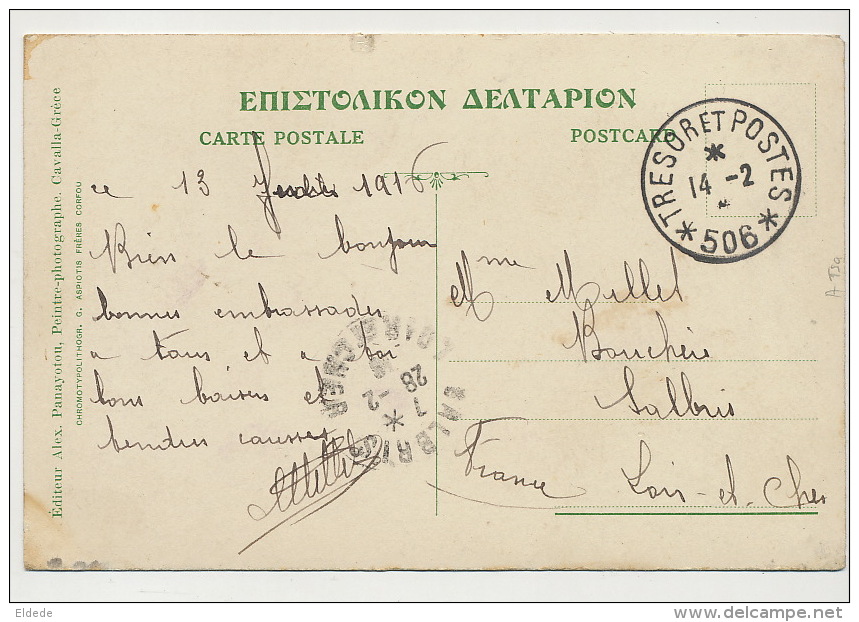 ΕΠΙΣΤΟΛΙΚΟΝ ΔΕΛΤΑΡΙΟΝ
CARTE POSTALE POSTCARD
TRESOR ET POSTES
14 -2
* 506 *
ce 13 1916
Bien le bonjour
bonnes embrassades
a tous et a toi
bons baisers et
tendres causses
Mme Millet
Boucherie
Salbris
Loir-et-Cher
France
SALBRIS
7 -2
28
LOIR-ET-CHER
Éditeur Alex. Panayotou, Peintre-photographe. Cavalla-Grèce
CHROMOTYPOLITHOGR. G. ASPIOTIS FRÈRES CORFOU
Eldede
delcampe.net